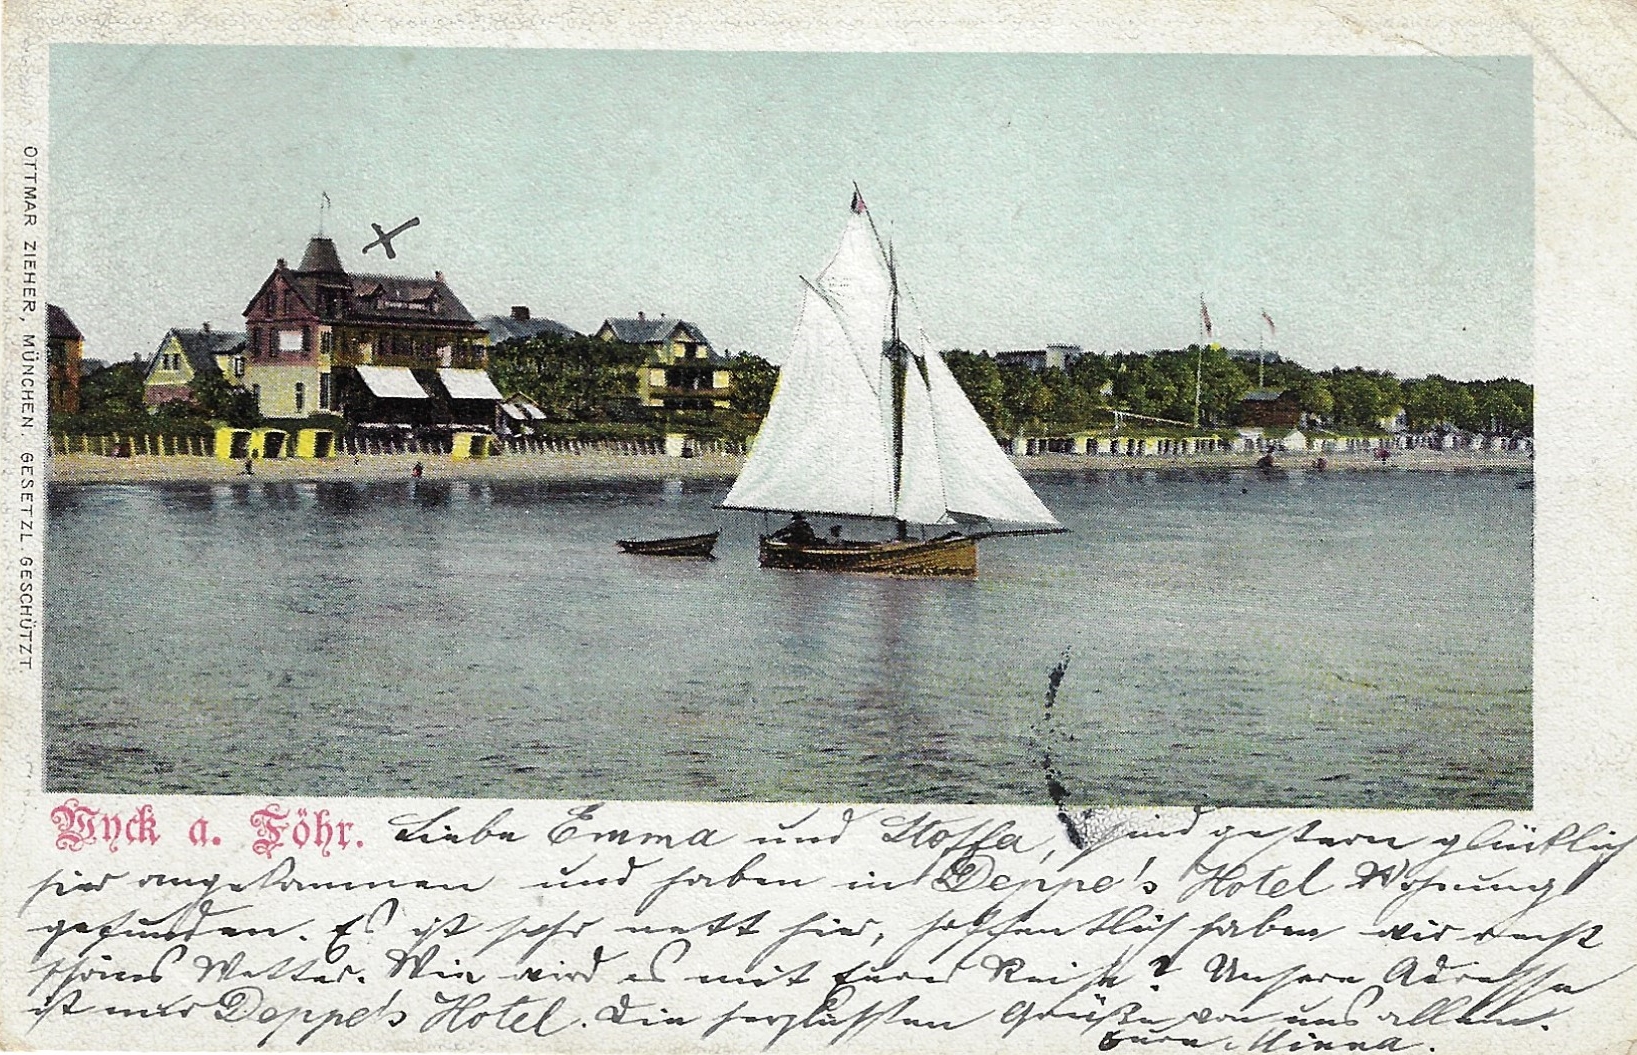 OTTMAR ZIEHER, MÜNCHEN. GESETZL. GESCHÜTZT.
Wyck a. Föhr. Liebe Emma und Stoffa, sind gestern glücklich
hier angekommen und haben in Deppe's Hotel Wohnung
gefunden. Es ist sehr nett hier, hoffentlich haben wir recht
schönes Wetter. Wie wird es mit Eurer Reise? Unsere Adresse
ist nur Deppe's Hotel. Die herzlichsten Grüße von uns allen.
Eure Minna.